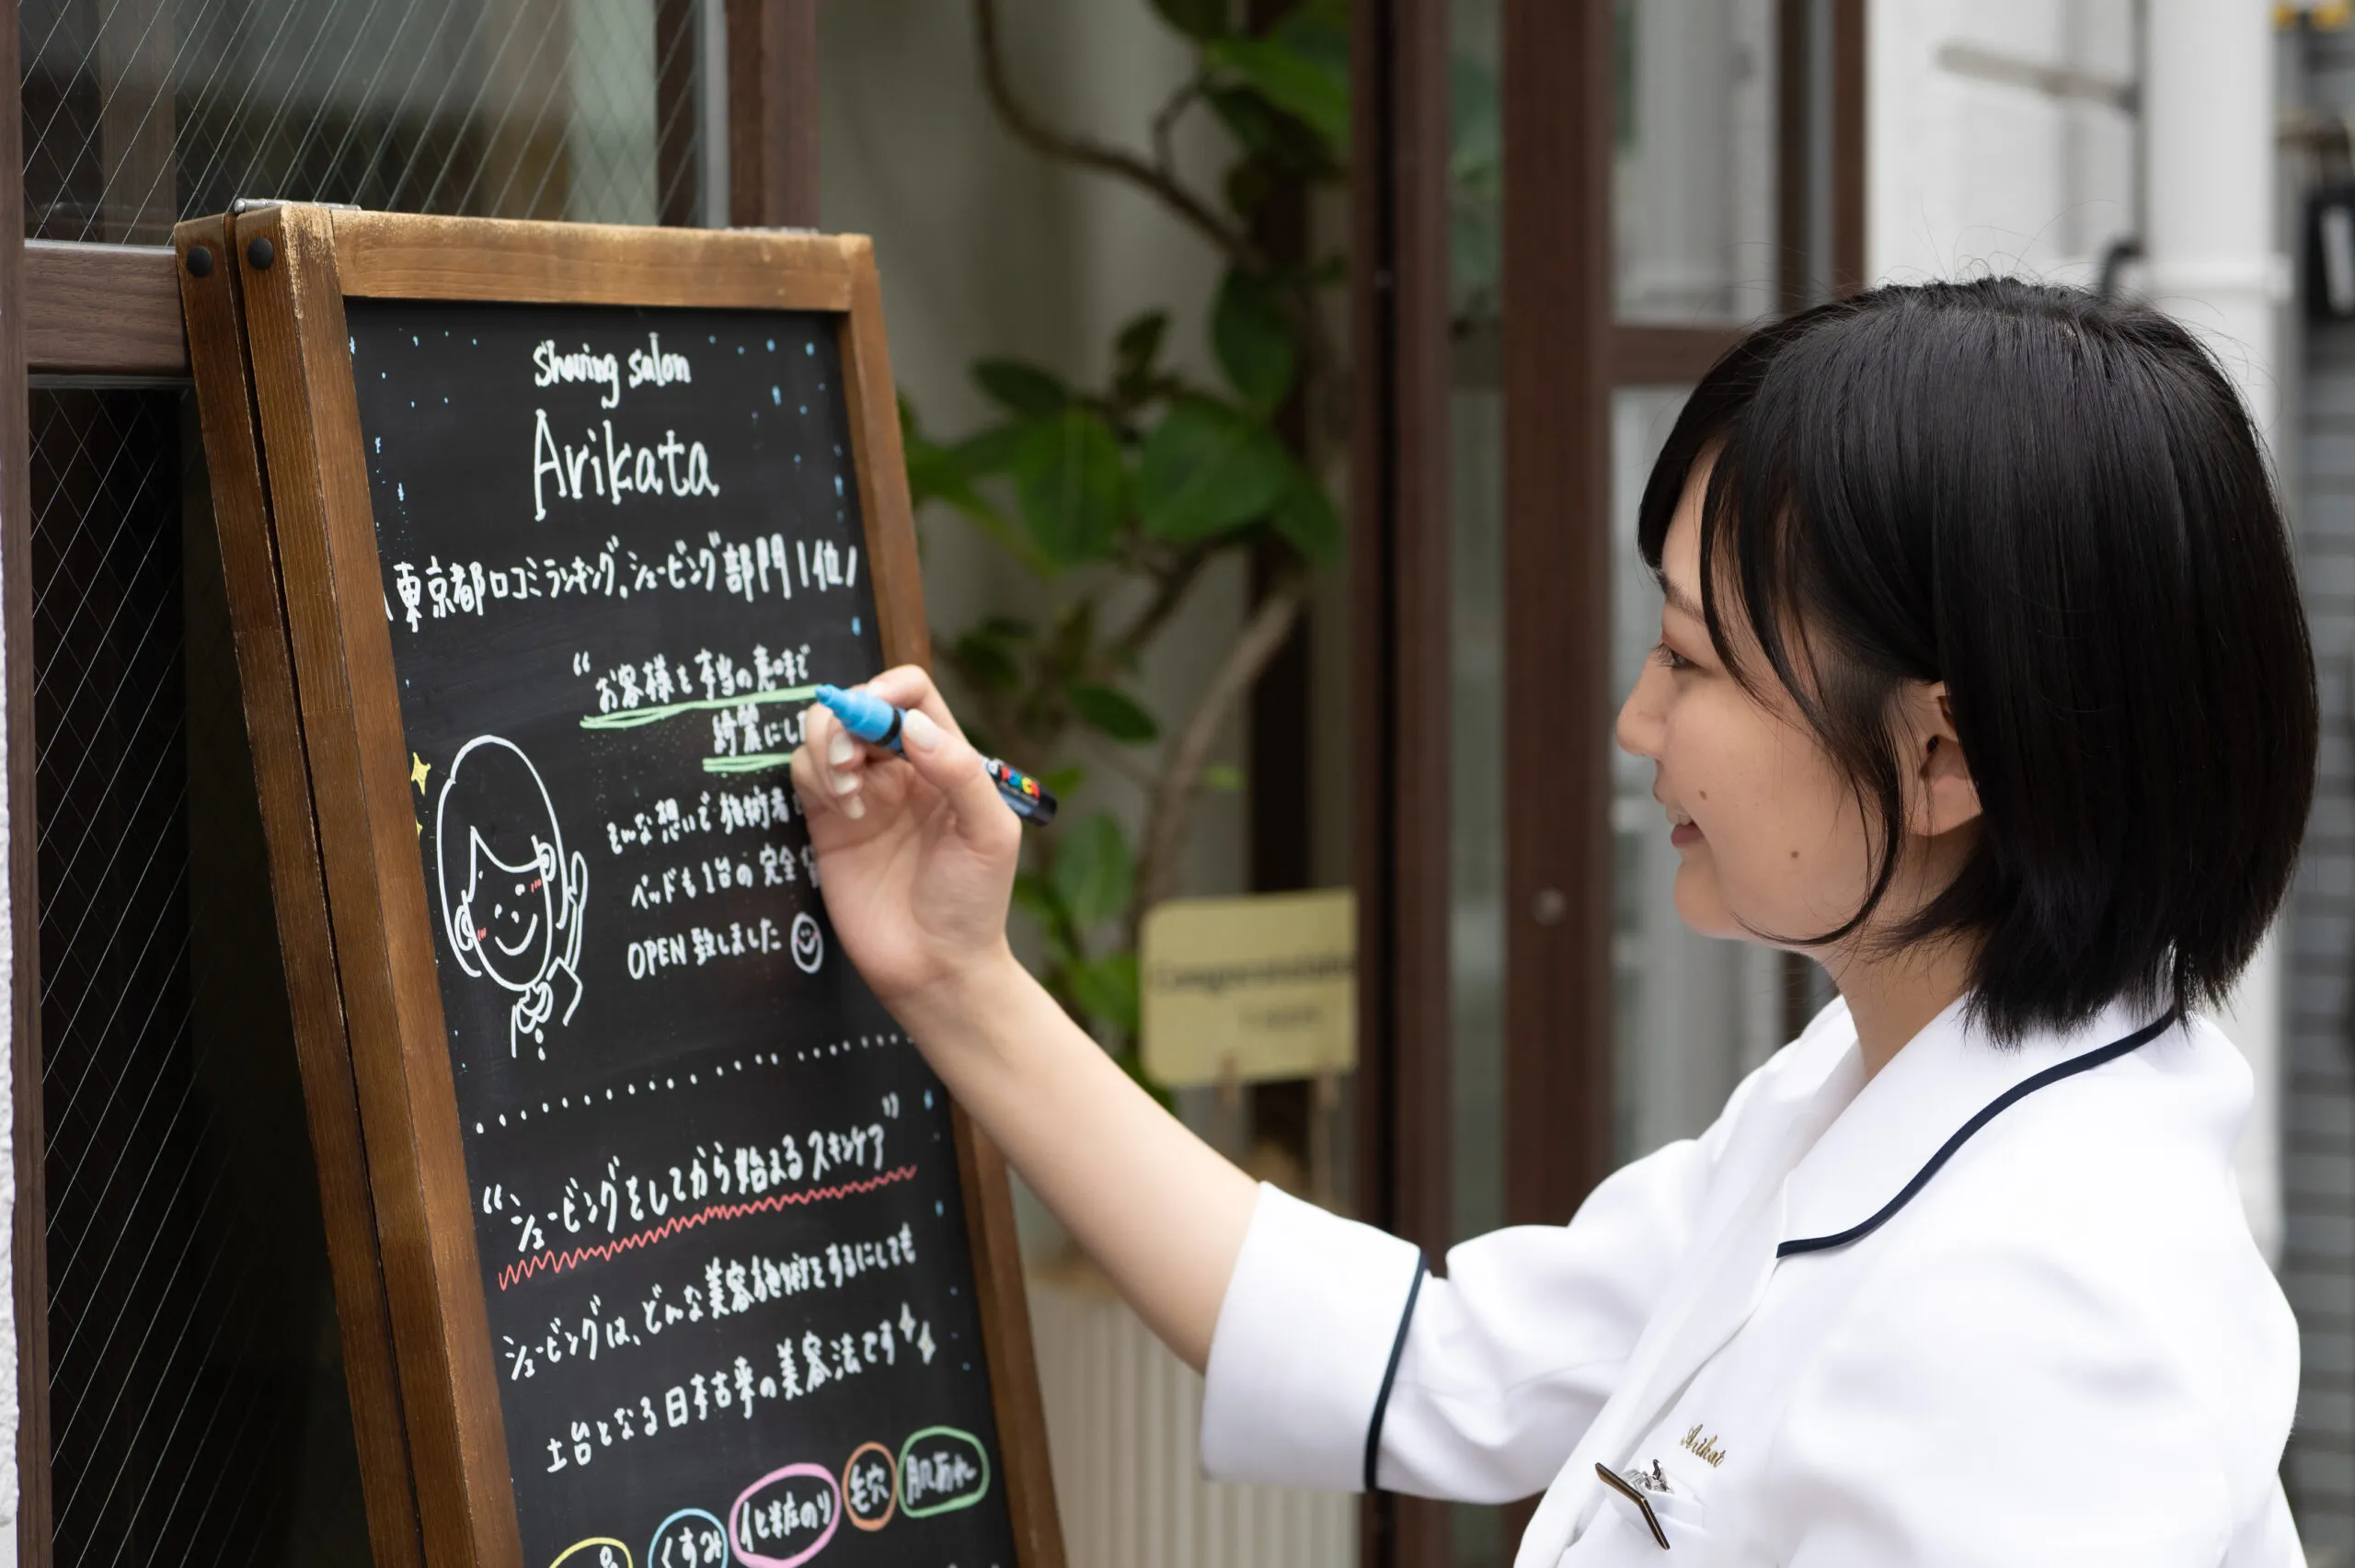 Shaving salon
Arikata
\東京都口コミランキング.シェービング部門1位/
“お客様を本当の意味で
綺麗にし
そんな想いで施術者
ベッドも1台の完全
OPEN致しました
“シェービングをしてから始まるスキンケア”
シェービングは、どんな美容施術をするにしても
土台となる日本古来の美容法です
くすみ 化粧のり 毛穴 肌荒れ
Arikat